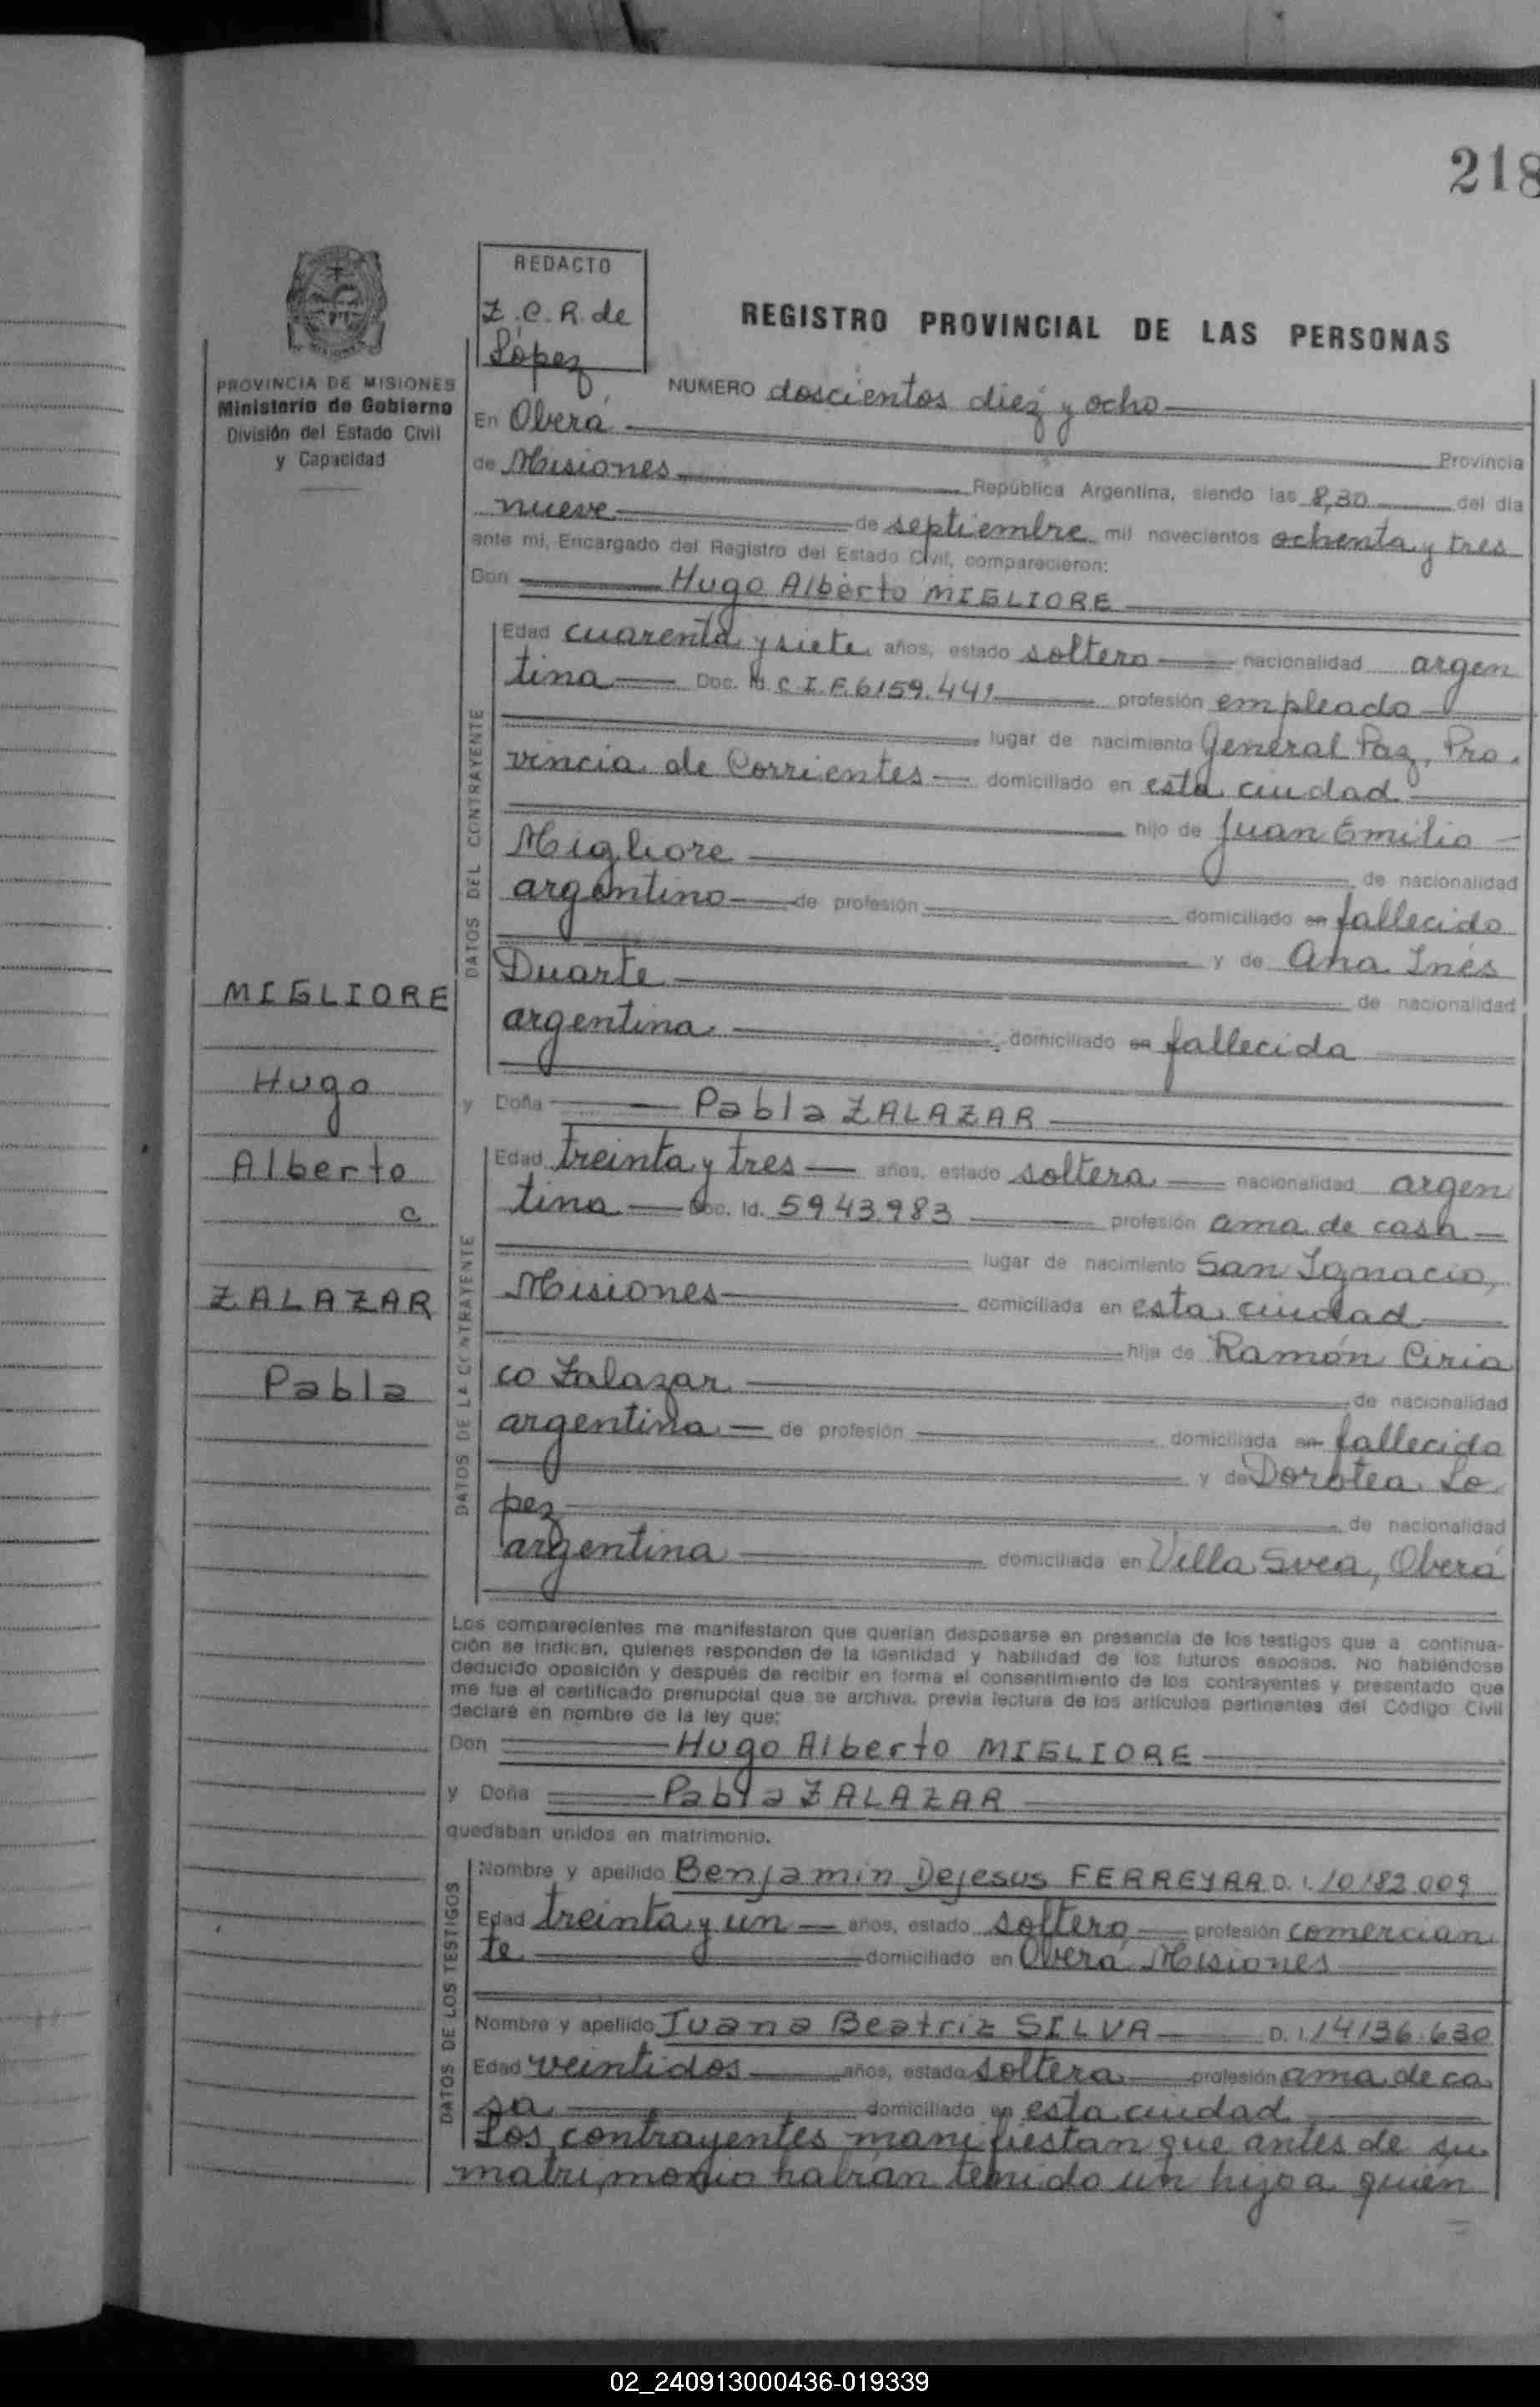 218
REDACTO
Z.C.R. de
López
PROVINCIA DE MISIONES
Ministerio de Gobierno
División del Estado Civil
y Capacidad
REGISTRO PROVINCIAL DE LAS PERSONAS
NUMERO doscientos diez y ocho
En Oberá Provincia
de Misiones República Argentina, siendo las 8,30 del día
nueve de septiembre mil novecientos ochenta y tres
ante mí, Encargado del Registro del Estado Civil, comparecieron:
Don Hugo Alberto MIGLIORE
DATOS DEL CONTRAYENTE
Edad cuarenta y siete años, estado soltero nacionalidad argen
tina Doc. C.I.F. 6159.441 profesión empleado
lugar de nacimiento General Paz, Pro.
vincia de Corrientes domiciliado en esta ciudad
hijo de Juan Emilio
Migliore de nacionalidad
argentino de profesión domiciliado en fallecido
y de Ana Inés
Duarte de nacionalidad
argentina domiciliado en fallecida
y Doña Pabla ZALAZAR
DATOS DE LA CONTRAYENTE
Edad treinta y tres años, estado soltera nacionalidad argen
tina Doc. Id. 5943.983 profesión ama de casa
lugar de nacimiento San Ignacio,
Misiones domiciliada en esta ciudad
hija de Ramón Ciria
co Zalazar de nacionalidad
argentina de profesión domiciliada en fallecido
y de Dorotea Lo
pez de nacionalidad
argentina domiciliada en Villa Svea, Oberá
MIGLIORE
Hugo
Alberto
c
ZALAZAR
Pabla
Los comparecientes me manifestaron que querían desposarse en presencia de los testigos que a continua-
ción se indican, quienes responden de la identidad y habilidad de los futuros esposos. No habiéndose
deducido oposición y después de recibir en forma el consentimiento de los contrayentes y presentado que
me fue el certificado prenupcial que se archiva, previa lectura de los artículos pertinentes del Código Civil
declaré en nombre de la ley que:
Don Hugo Alberto MIGLIORE
y Doña Pabla ZALAZAR
quedaban unidos en matrimonio.
DATOS DE LOS TESTIGOS
Nombre y apellido Benjamin Dejesus FERREYRA D. I. 10182.009
Edad treinta y un años, estado soltero profesión comercian
te domiciliado en Oberá Misiones
Nombre y apellido Juana Beatriz SILVA D. I. 14136.630
Edad veintidos años, estado soltera profesión ama de ca
sa domiciliado en esta ciudad
Los contrayentes manifiestan que antes de su
matrimonio habían tenido un hijo a quién
02_240913000436-019339